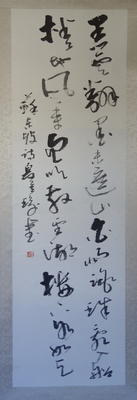 黑雲翻墨未遮山白雨跳珠亂入船
捲地風來忽吹散望湖樓下水如天
蘇東坡詩